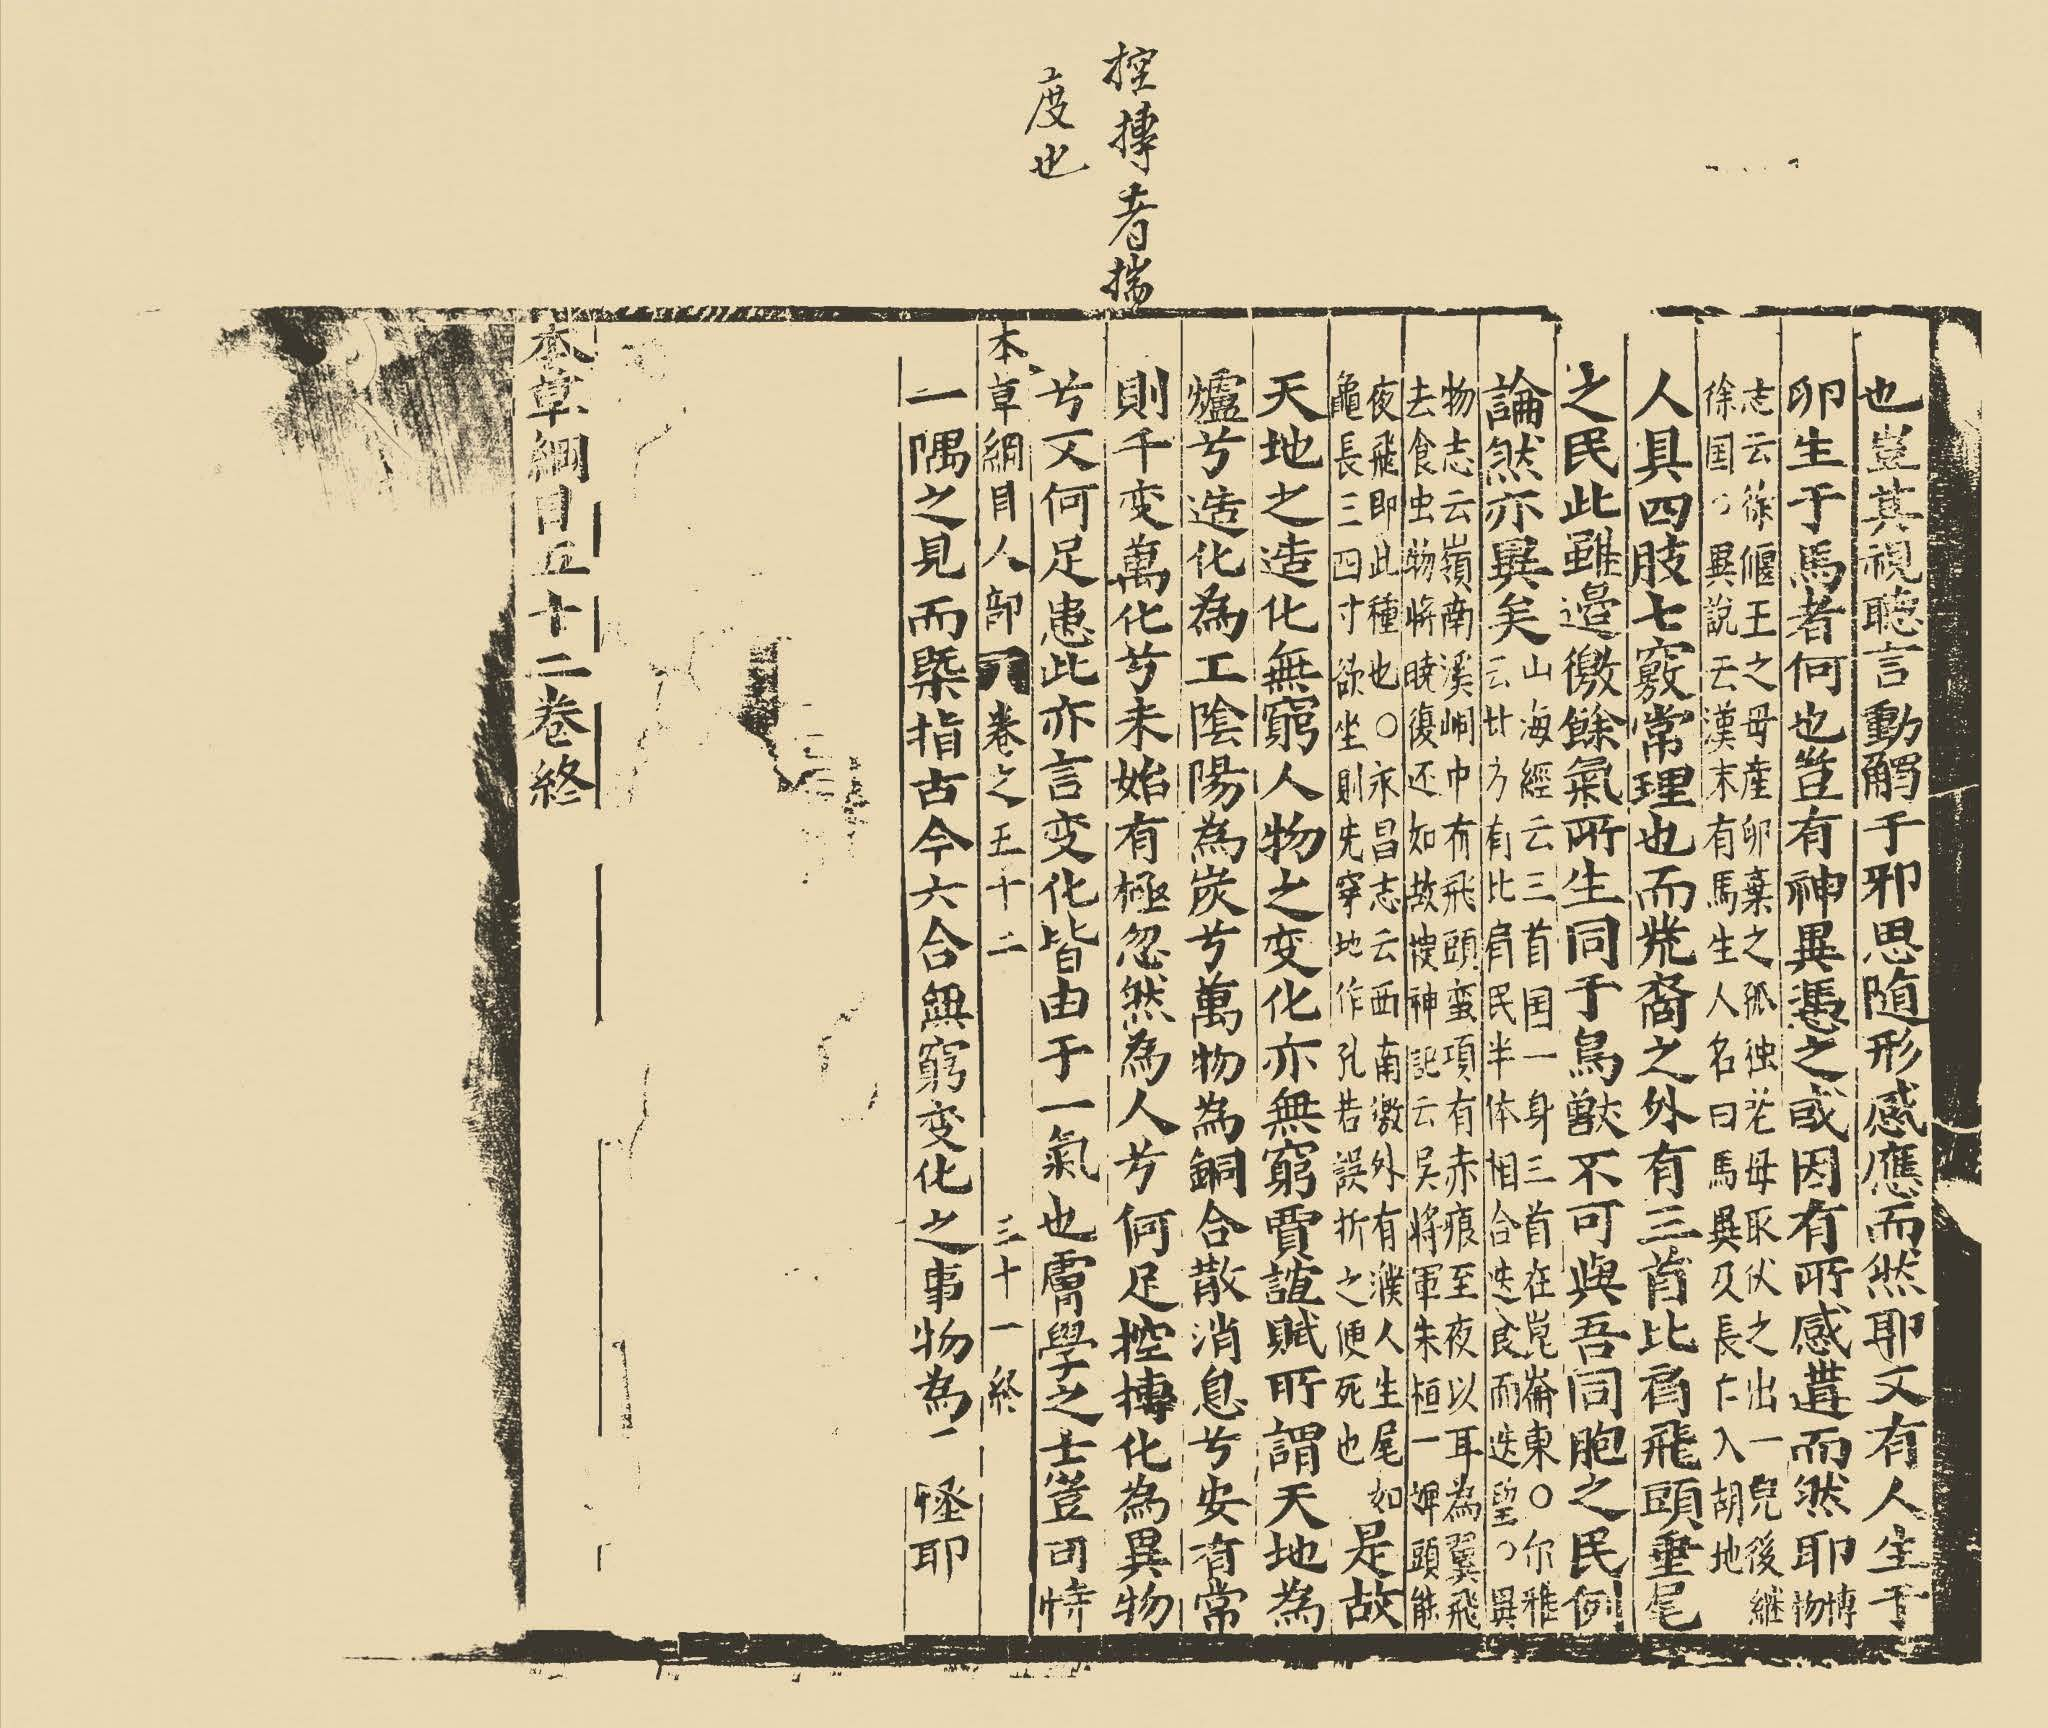 控摶者揣
度也
也豈其視聽言動觸于邪思随形感應而然耶又有人生于
卵生于馬者何也豈有神異憑之或因有所感遘而然耶博物
志云徐偃王之母産卵棄之孤独老母取伏之出一兒後継
徐国〻異說云漢末有馬生人名曰馬異及長亡入胡地
人具四肢七竅常理也而荒裔之外有三首比肩飛頭垂尾
之民此雖邊徼餘氣所生同于鳥獸不可與吾同胞之民例
論然亦異矣
山海經云三首国一身三首在崑崙東〇尔雅
云北方有比肩民半体相合迭食而迭望〻異
物志云嶺南溪峒中有飛頭蛮項有赤痕至夜以耳為翼飛
去食虫物將曉復还如故搜神記云吴將軍朱桓一婢頭能
夜飛即此種也〇永昌志云西南徼外有濮人生尾如
龜長三四寸欲坐則先穿地作孔若誤折之便死也
是故
天地之造化無窮人物之变化亦無窮賈誼賦所謂天地為
爐兮造化為工陰陽為炭兮萬物為銅合散消息兮安有常
則千变萬化兮未始有極忽然為人兮何足控摶化為異物
兮又何足患此亦言变化皆由于一氣也膚學之士豈可恃
本草綱目人部 八 卷之五十二 三十一終
一隅之見而槩指古今六合無窮变化之事物為迂怪耶
本草綱目五十二卷終